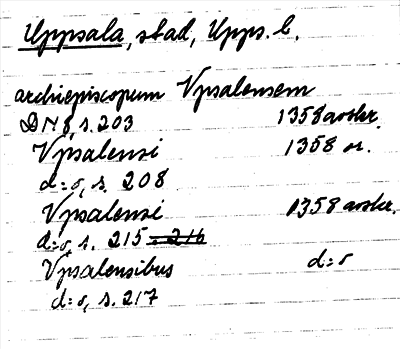 Uppsala, stad, Upps. l.
archiepiscopum Vpsalensem
DN 8, s. 203 1358 avskr.
Vpsalensi 1358 or.
d:o, s. 208
Vpsalensi 1358 avskr.
d:o, s. 215 - 216
Vpsalensibus d:o
d:o, s. 217